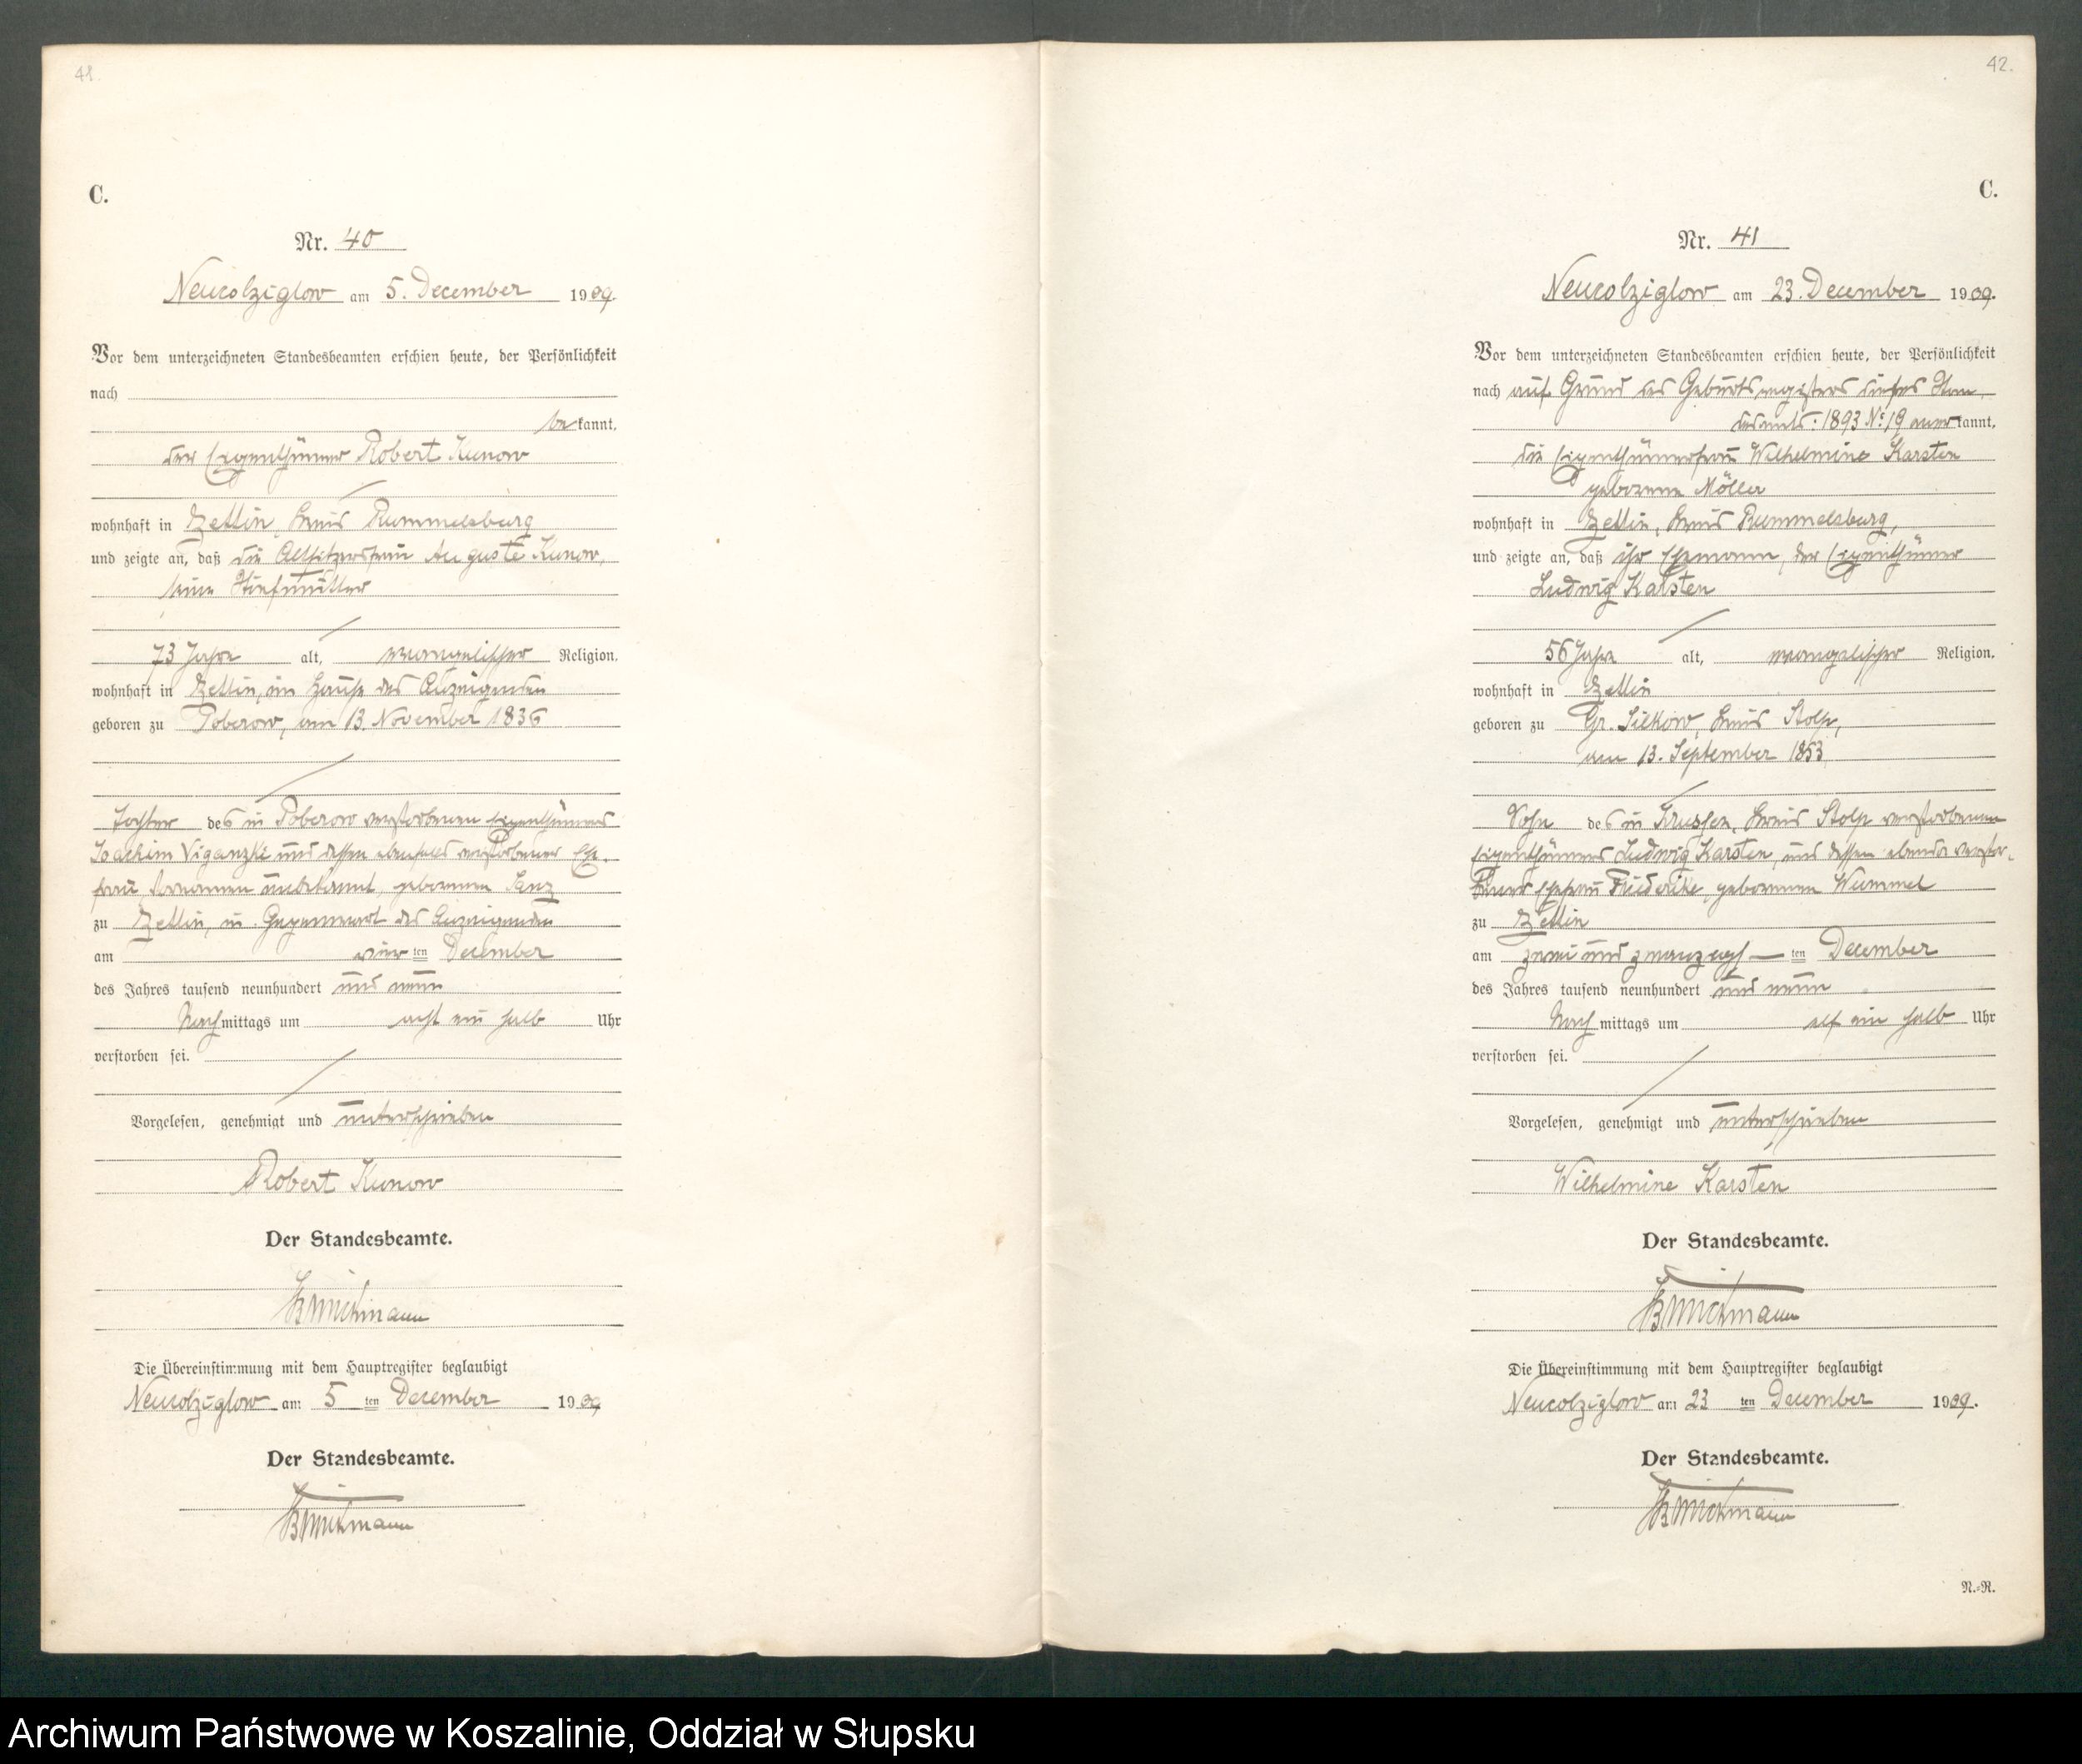 41.
C.
Nr. 40
Neucolziglow am 5. December 1909.
Vor dem unterzeichneten Standesbeamten erschien heute, der Persönlichkeit
nach
bekannt,
der Eigenthümer Robert Kunow
wohnhaft in Zettin, Kreis Rummelsburg
und zeigte an, daß die Altsitzersfrau Auguste Kunow,
seine Stiefmutter
73 Jahre alt, evangelischer Religion,
wohnhaft in Zettin, im Hause des Anzeigenden
geboren zu Poberow, am 13. November 1836
Tochter des in Poberow verstorbenen Eigenthümers
Joachim Viganzki und dessen ebenfalls verstorbener Ehe-
frau, Vornamen unbekannt, geborenen Janz
zu Zettin, in Gegenwart des Anzeigenden
am vier ten December
des Jahres tausend neunhundert und neun
Nachmittags um acht ein halb Uhr
verstorben sei.
Vorgelesen, genehmigt und unterschrieben
Robert Kunow
Der Standesbeamte.
Die Übereinstimmung mit dem Hauptregister beglaubigt
Neucolziglow am 5 ten December 1909
Der Standesbeamte.
42.
C.
Nr. 41
Neucolziglow am 23. December 1909.
Vor dem unterzeichneten Standesbeamten erschien heute, der Persönlichkeit
nach auf Grund des Geburtsregisters dieses Stan-
desamts: 1893 No: 19 anerkannt,
die Eigenthümerfrau Wilhelmine Karsten
geborene Möller
wohnhaft in Zettin, Kreis Rummelsburg,
und zeigte an, daß ihr Ehemann, der Eigenthümer
Ludwig Karsten
56 Jahre alt, evangelischer Religion,
wohnhaft in Zettin
geboren zu Gr. Silkow, Kreis Stolp,
am 13. September 1853
Sohn des in Krussen, Kreis Stolp verstorbenen
Eigenthümers Ludwig Karsten, und dessen ebenda verstor-
bener Ehefrau Friederike, geborenen Wummel
zu Zettin
am zwei und zwanzigsten December
des Jahres tausend neunhundert und neun
Nachmittags um elf ein halb Uhr
verstorben sei.
Vorgelesen, genehmigt und unterschrieben
Wilhelmine Karsten
Der Standesbeamte.
Die Übereinstimmung mit dem Hauptregister beglaubigt
Neucolziglow am 23 ten December 1909.
Der Standesbeamte.
N.-R.
Archiwum Państwowe w Koszalinie, Oddział w Słupsku